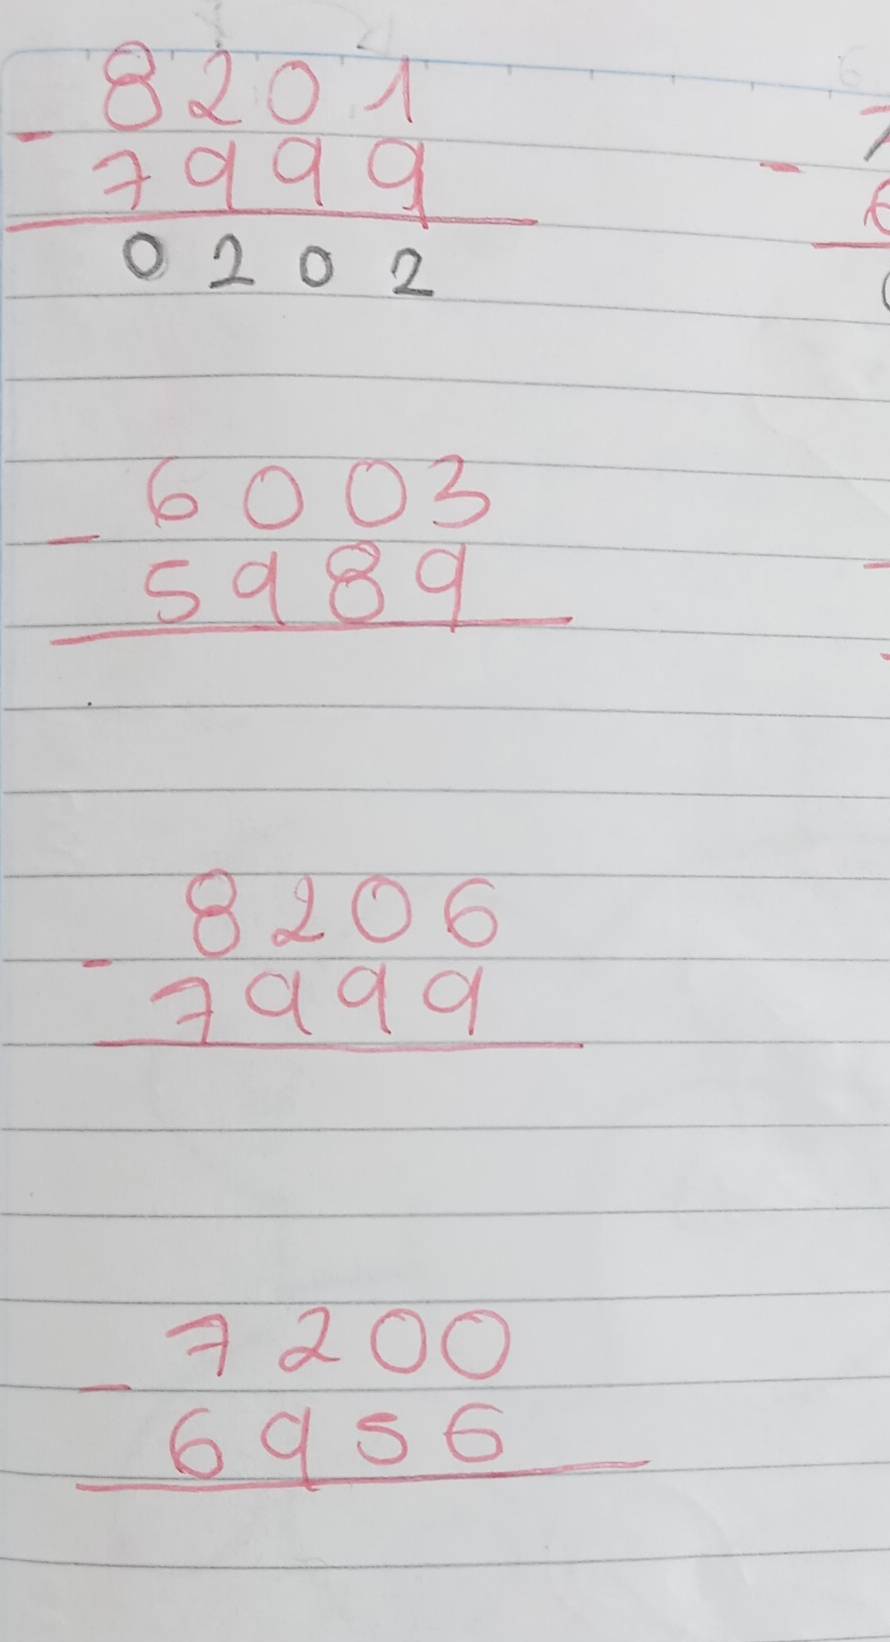 8201
- 7999
0202
6003
- 5989
8206
- 7999
7200
- 6956